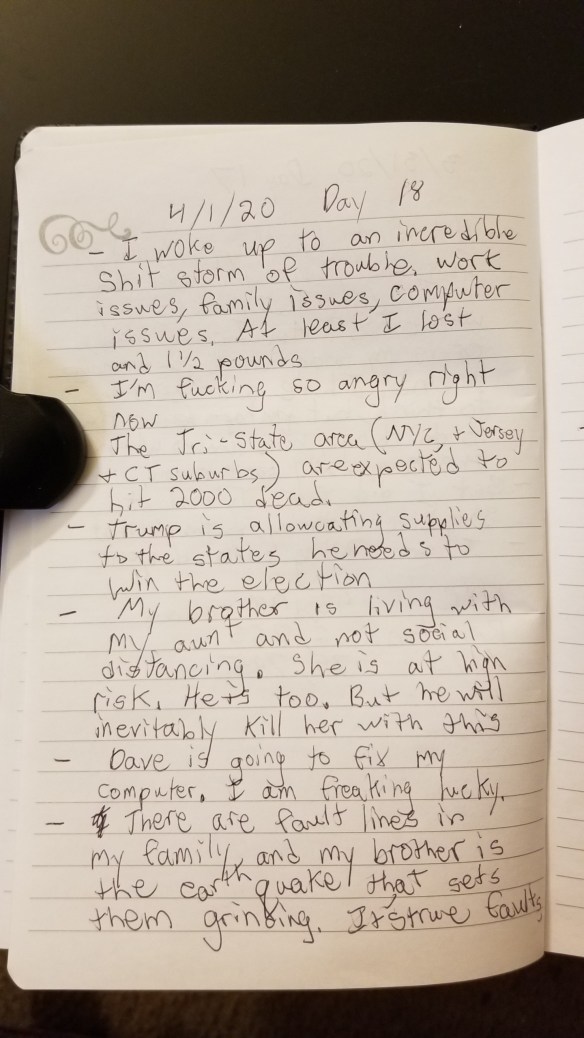 4/1/20 Day 18
- I woke up to an incredible
Shit storm of trouble. Work
issues, family issues, computer
issues. At least I lost
and 1 1/2 pounds
- I'm fucking so angry right
now
The Tri-State area (NYC, + Jersey
+ CT suburbs) are expected to
hit 2000 dead.
- Trump is allowcating supplies
to the states he needs to
win the election
- My brother is living with
my aunt and not social
distancing. She is at high
risk. He is too. But he will
inevitably kill her with this
- Dave is going to fix my
computer. I am freaking lucky.
- There are fault lines in
my family, and my brother is
the earthquake that sets
them grinding. It's true faults